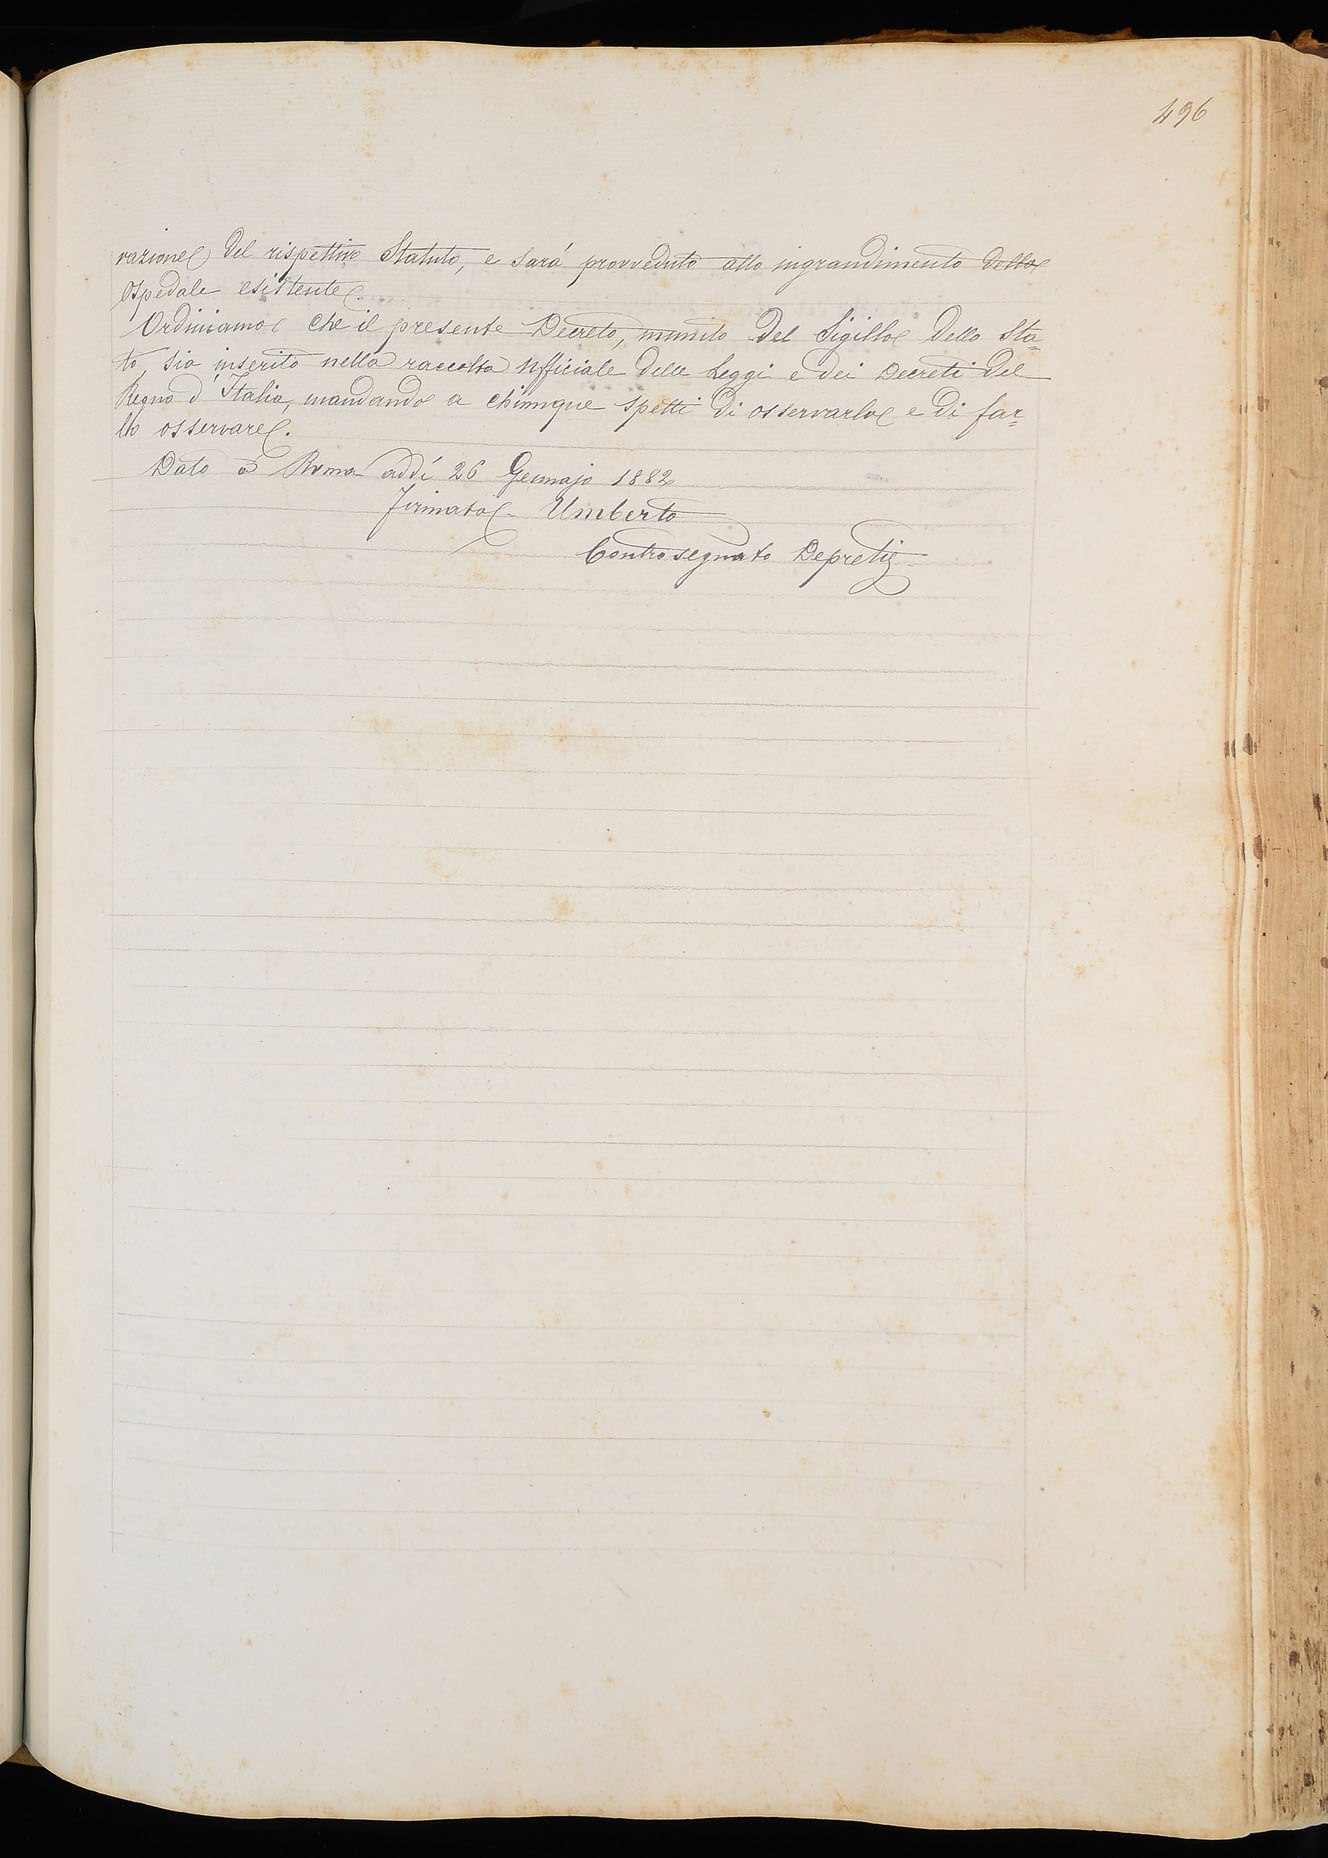 496
razione del rispettivo Statuto, e sará provveduto allo ingrandimento dello
Ospedale esistente.
Ordiniamo che il presente Decreto, munito del Sigillo dello Sta=
to, sia inserito nella raccolta ufficiale delle Leggi e dei Decreti del
Regno d'Italia, mandando a chiunque spetti di osservarlo e di far=
lo osservare.
Dato a Roma addí 26 Gennajo 1882
Firmato - Umberto
Controsegnato Depretis